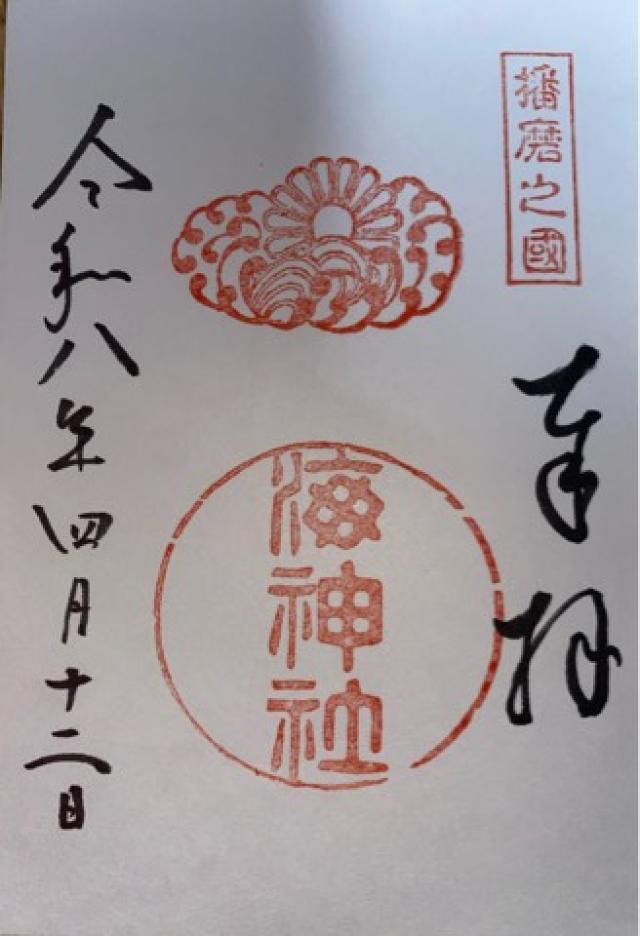 播磨之國
奉拝
海神社
令和八年四月十二日